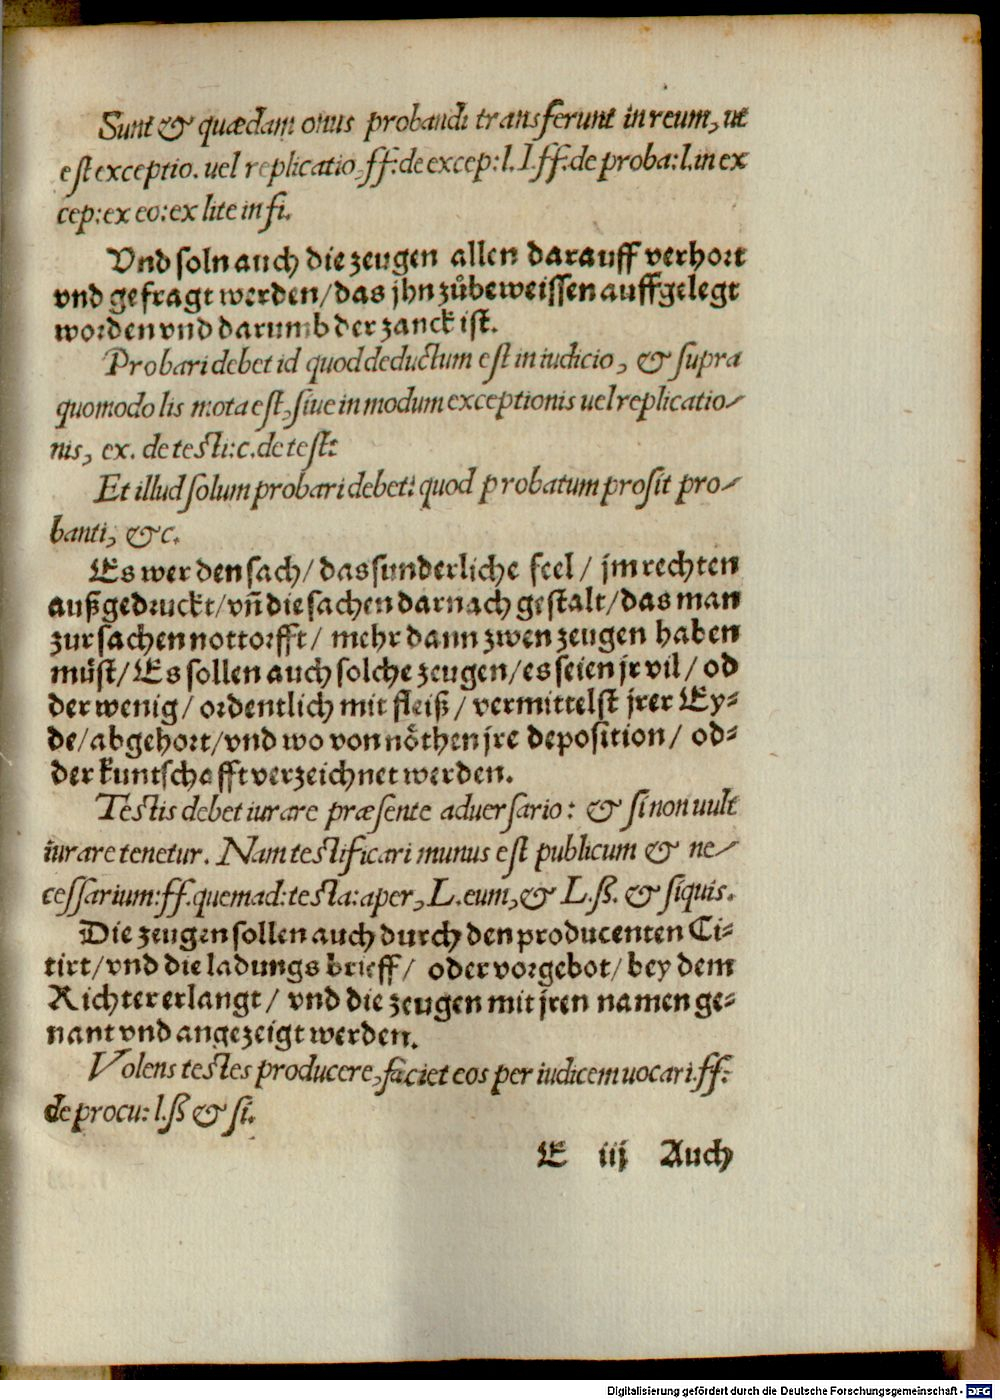 Sunt & quædam onus probandi transferunt in reum, ut
est exceptio. uel replicatio, ff: de excep: l. I. ff: de proba: l. in ex
cep: ex eo: ex lite in fi.
Vnd soln auch die zeugen allen darauff verhort
vnd gefragt werden/das jhn zůbeweissen auffgelegt
worden vnd darumb der zanck ist.
Probari debet id quod deductum est in iudicio, & supra
quomodo lis mota est, siue in modum exceptionis uel replicatio-
nis, ex. de testi: c. de test:
Et illud solum probari debet: quod probatum prosit pro-
banti, &c.
Es wer den sach/das sunderliche feel/ jm rechten
außgedruckt/vñ die sachen darnach gestalt/das man
zur sachen nottorfft/ mehr dann zwen zeugen haben
müst/Es sollen auch solche zeugen/es seien jr vil/ od
der wenig/ ordentlich mit fleiß/ vermittelst jrer Ey-
de/abgehort/vnd wo von nöthen jre deposition/ od-
der kuntschafft verzeichnet werden.
Testis debet iurare præsente aduersario: & si non uult
iurare tenetur. Nam testificari munus est publicum & ne-
cessarium: ff. quemad: testa: aper, L. eum, & L.ß. & siquis.
Die zeugen sollen auch durch den producenten Ci-
tirt/vnd die ladungs brieff/ oder vorgebot/bey dem
Richter erlangt/ vnd die zeugen mit jren namen ge-
nant vnd angezeigt werden.
Volens testes producere, faciet eos per iudicem uocari. ff:
de procu: l.ß & si.
E iij Auch
Digitalisierung gefördert durch die Deutsche Forschungsgemeinschaft - DFG